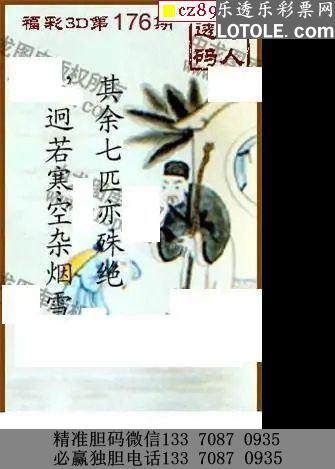 福彩3D第176期
cz89
乐透乐彩票网
LOTOLE.COM
透码
人
其余七匹亦殊绝
迥若寒空杂烟雪
精准胆码微信133 7087 0935
必赢独胆电话133 7087 0935